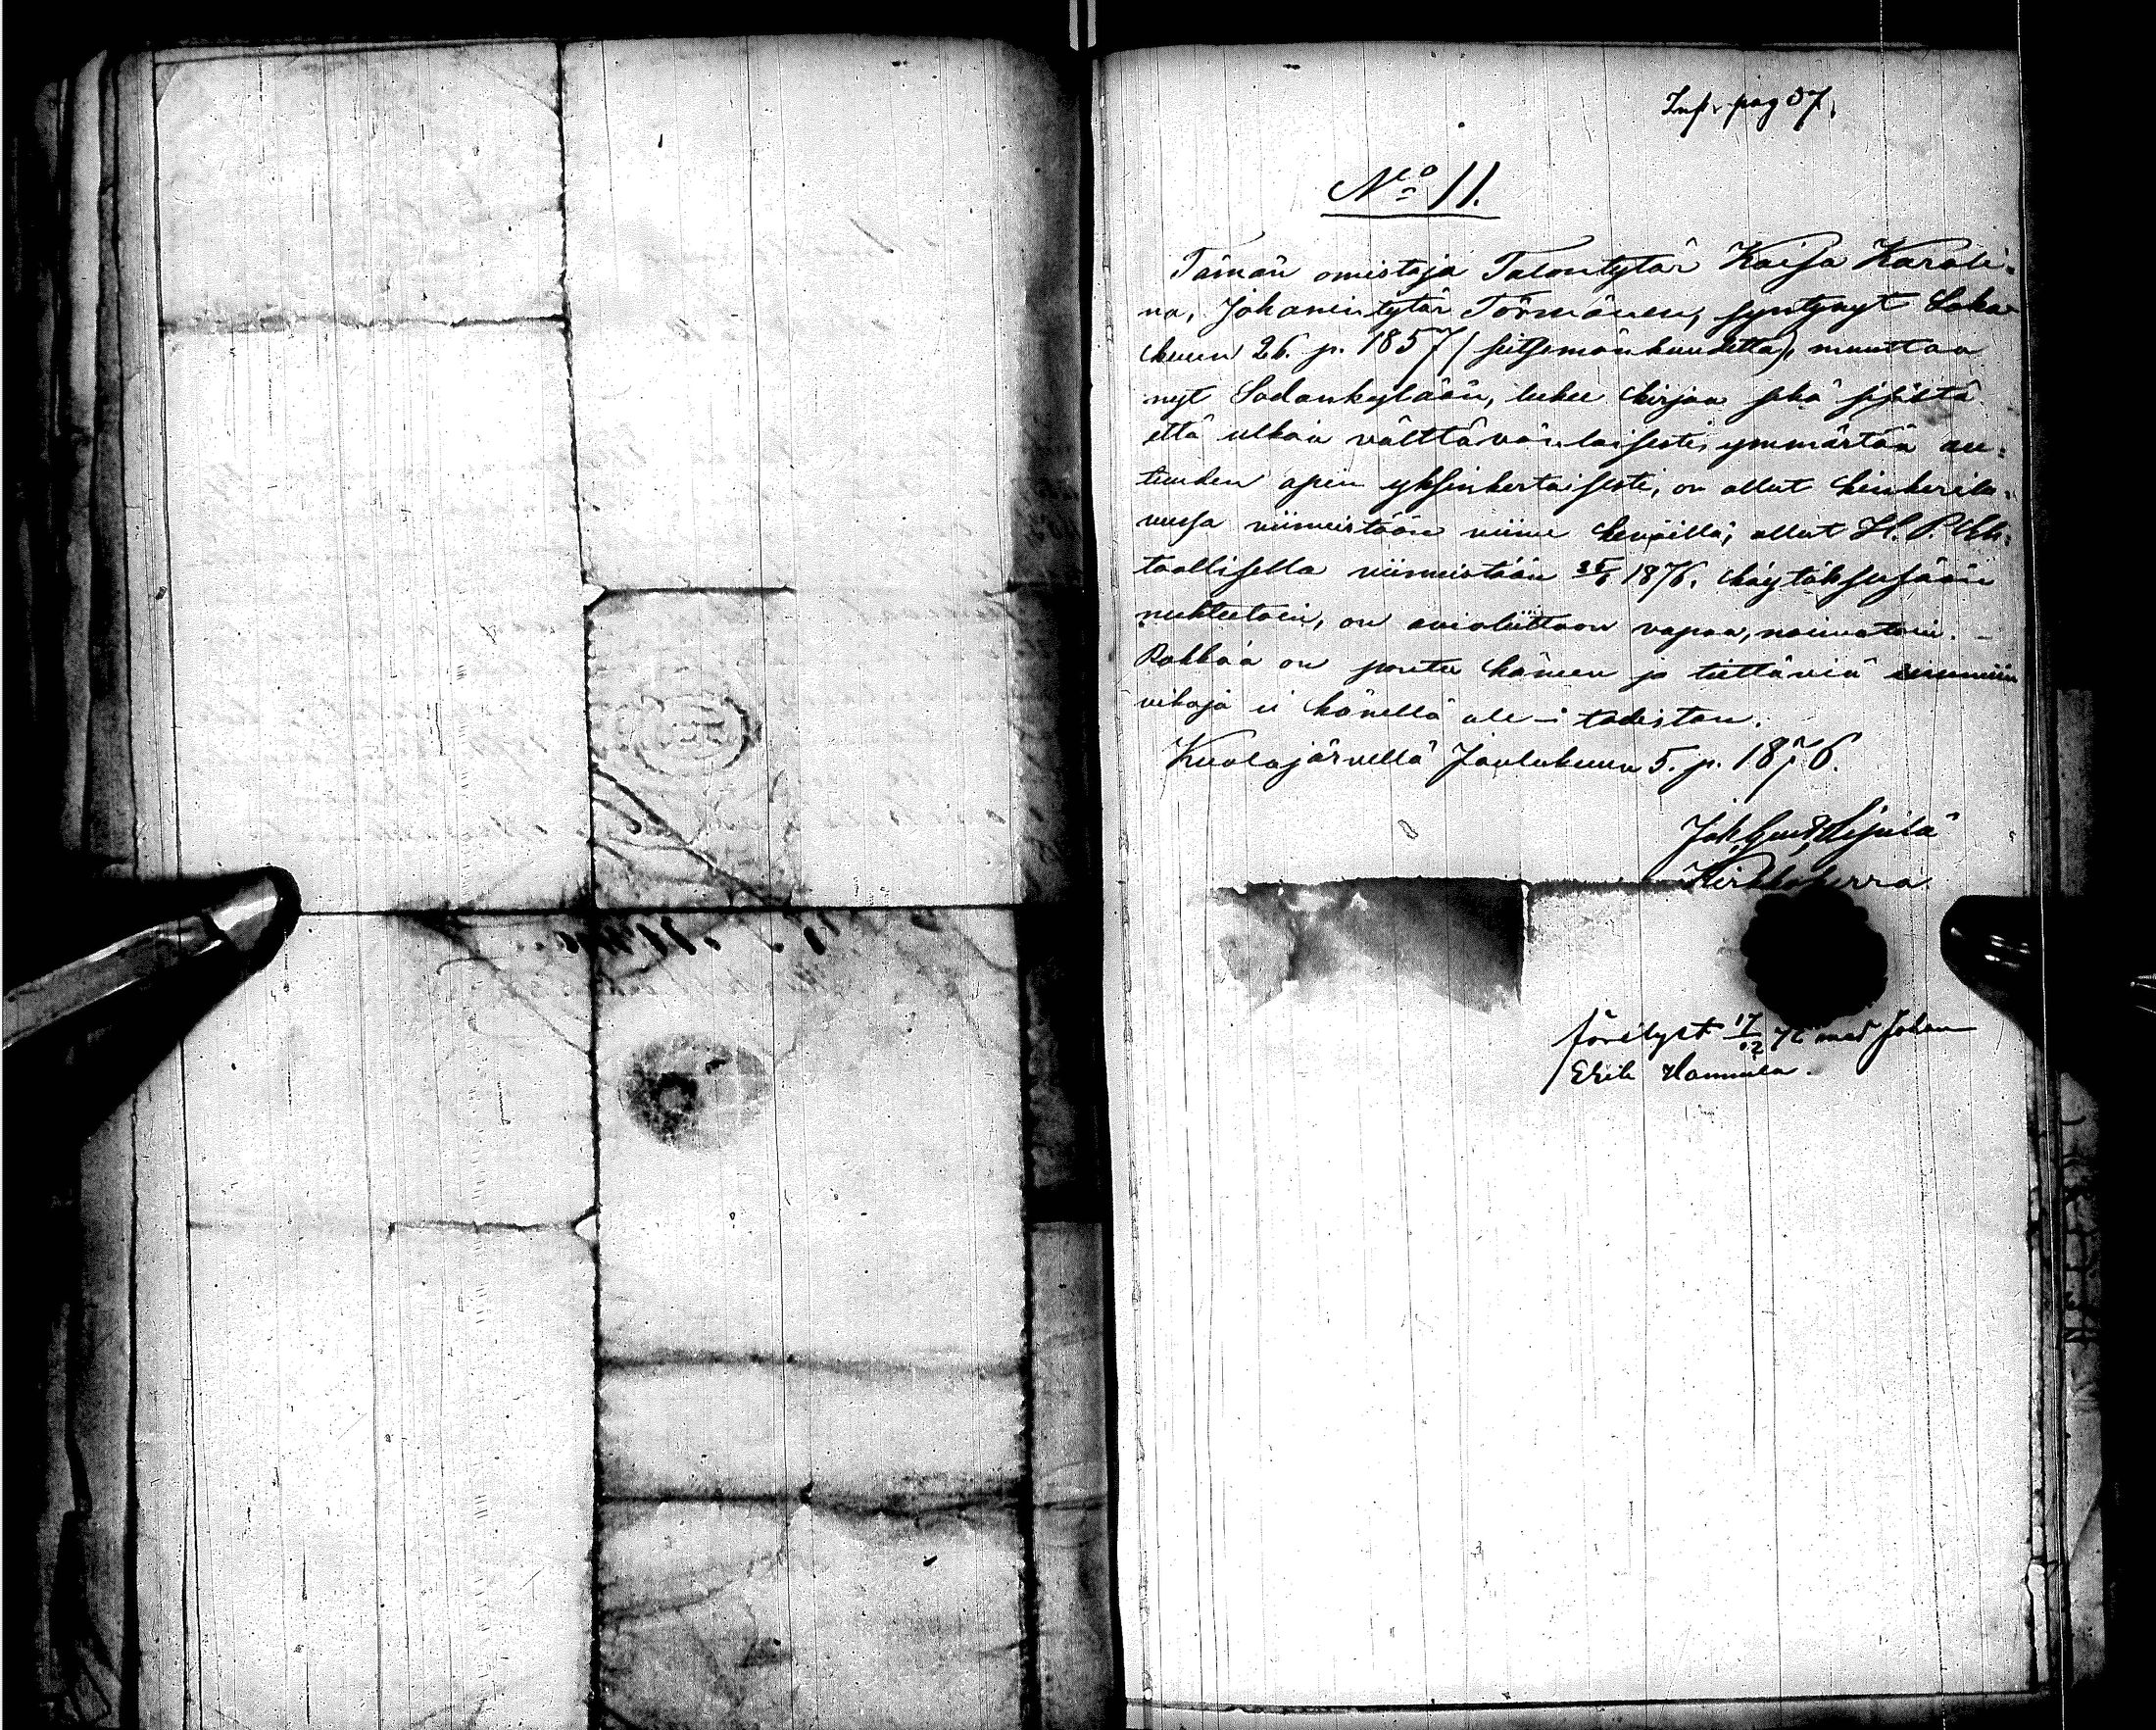 Inf. pag 37.
No 11.
Tämän omistaja Talontytär Kaisa Karoli=
na, Johanintytär Törmänen, syntynyt Loka
kuun 26. p. 1857 (seitsemänkuudetta), muuttaa
nyt Sodankylään, lukee kirjaa sekä sisältä
että ulkoa välttävänlaisesti, ymmärtää au=
tuuden opin yksinkertaisesti, on ollut kinkerilu=
vussa viimeistään viime keväillä, ollut H. P. Eh=
toollisella viimeistään 1876. käytöksessään
nuhteetoin, on avioliittoon vapaa, naimatoin. –
Rokkoa on pantu häneen ja tiettäviä
vikoja ei hänellä ole – todistan.
Kuolajärvellä Joulukuun 5. p. 1876.
Joh.
Kirkkoherra
förelyst 17/12 76 med Johan
Erik Hannula.